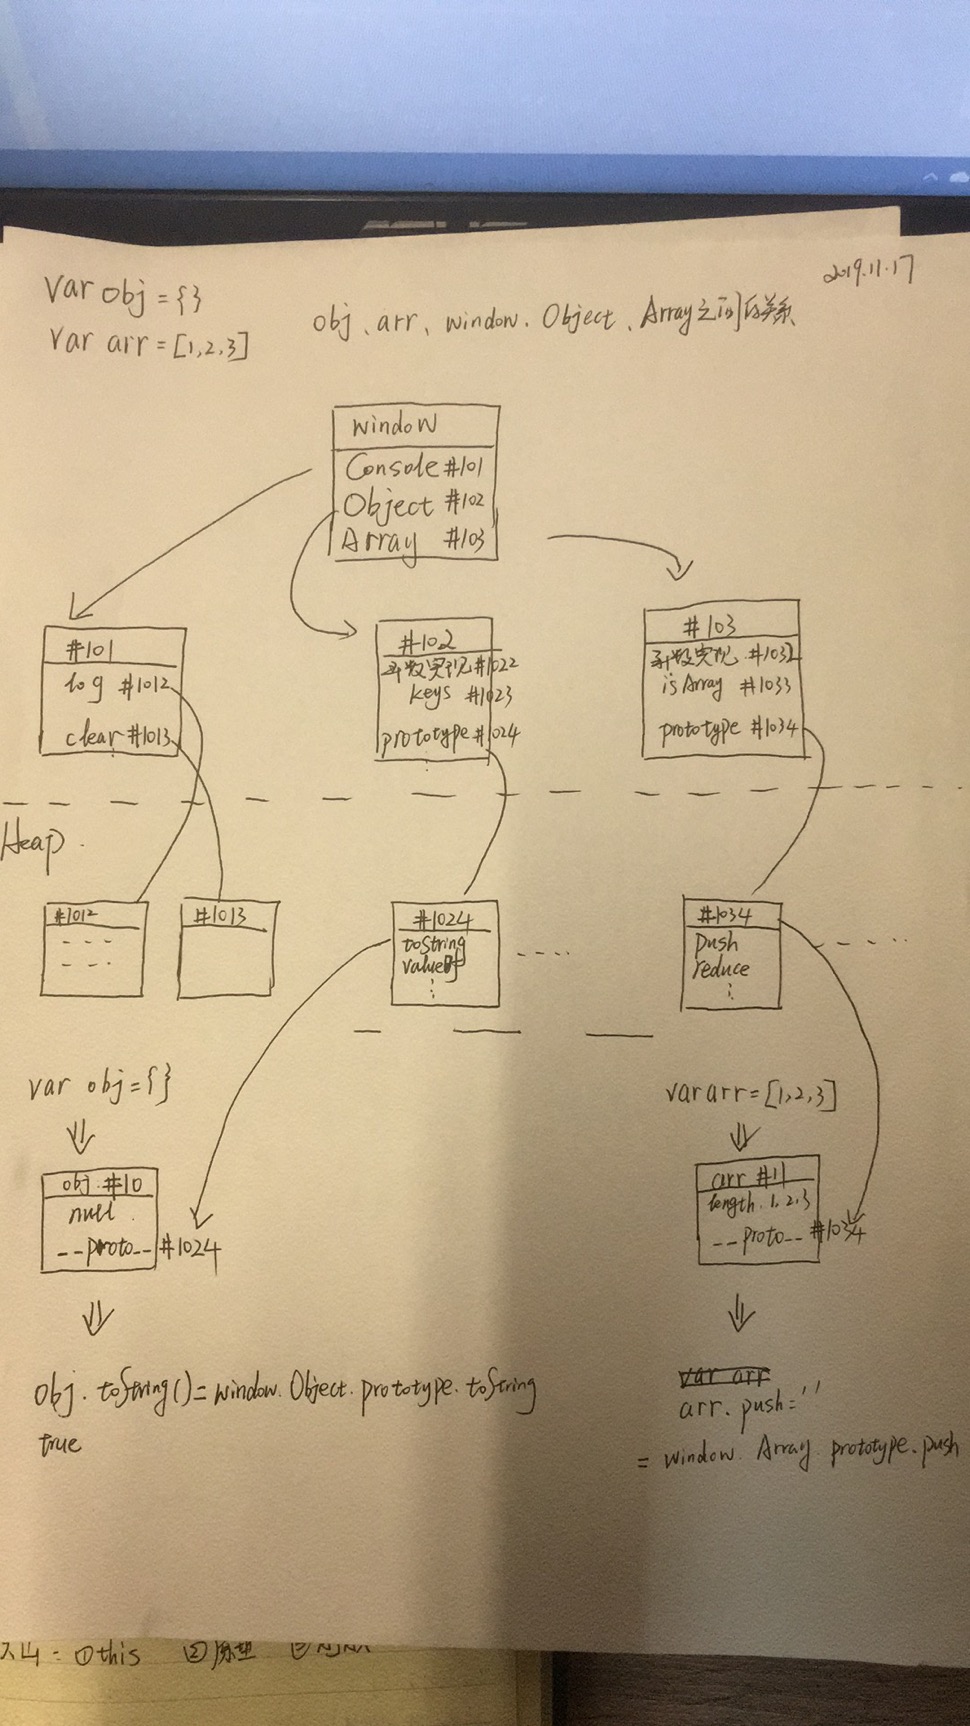 2019.11.17
var obj = {}
obj、arr、window、Object、Array之间的关系
var arr = [1,2,3]
window
Console #101
Object #102
Array #103
#101
log #1012
clear #1013
#102
函数实现 #1022
keys #1023
prototype #1024
#103
函数实现 #1032
isArray #1033
prototype #1034
Heap
#1012
#1013
#1024
toString
valueOf
#1034
push
reduce
var obj = {}
obj #10
null
__proto__ #1024
obj. toString() = window. Object. prototype. toString
true
var arr = [1,2,3]
arr #11
length. 1, 2, 3
__proto__ #1034
var arr
arr. push = ''
= window. Array. prototype. push
①this ②原型